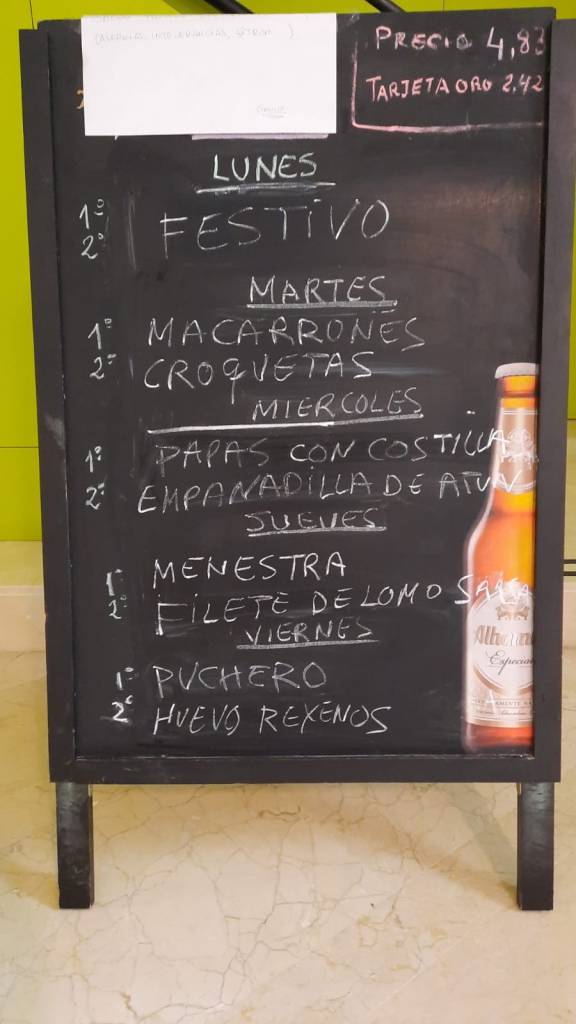 PRECIO 4,83
TARJETA ORO 2,42
LUNES
1º
2º
FESTIVO
MARTES
1º MACARRONES
2º CROQUETAS
MIERCOLES
1º PAPAS CON COSTILLA
2º EMPANADILLA DE ATUN
JUEVES
1º MENESTRA
2º FILETE DE LOMO SALSA
VIERNES
1º PUCHERO
2º HUEVO REXENOS
Especial